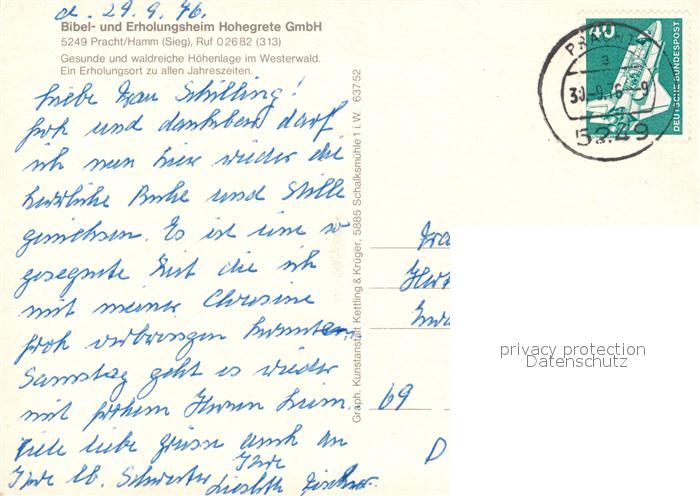 d. 29.9.76.
Bibel- und Erholungsheim Hohegrete GmbH
5249 Pracht/Hamm (Sieg), Ruf 0 26 82 (313)
Gesunde und waldreiche Höhenlage im Westerwald.
Ein Erholungsort zu allen Jahreszeiten.
Liebe Frau Schilling!
froh und dankbar darf
ich nun hier wieder die
herrliche Ruhe und Stille
geniehsen. Es ist eine so
gesegnete Zeit die ich
mit meiner Chrisine
froh verbringen konnte
Samstag geht es wieder
mit frohem Herzen heim.
Viele liebe grüsse auch an
Ihre lb. Schwester Ihre
Liesbeth Fischer.
Graph. Kunstanstalt Kettling & Krüger, 5885 Schalksmühle 1 i. W. 637 52
40
DEUTSCHE BUNDESPOST
PRACHT
a
30.-9.76-9
5249
69
D
privacy protection
Datenschutz